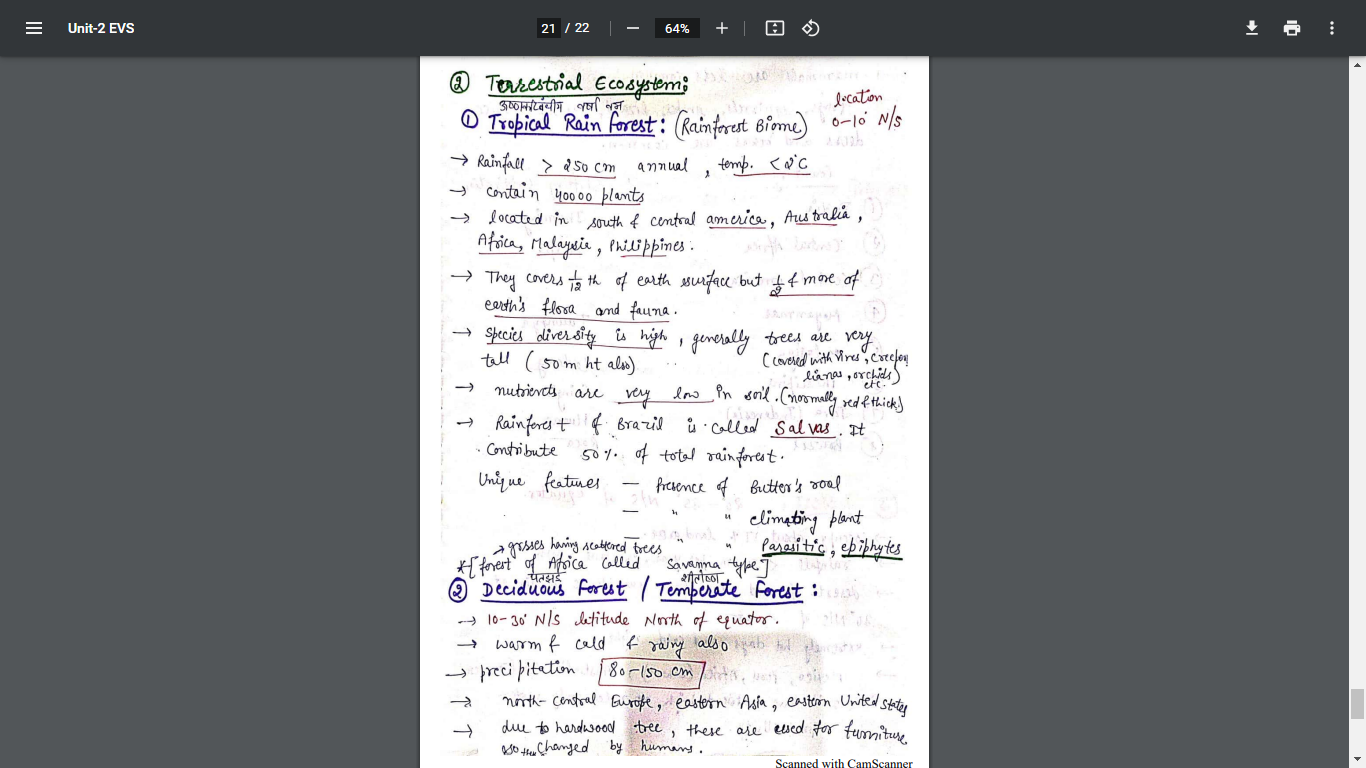 Unit-2 EVS
21 / 22
64%
② Terrestrial Ecosystem:
वर्षा वन
① Tropical Rain forest: (Rainforest Biome)
location
0-10° N/S
→ Rainfall > 250 cm annual, temp. < 2°C
→ contain 40000 plants
→ located in south & central america, Australia,
Africa, Malaysia, Philippines.
→ They covers 1/12 th of earth surface but 1/2 & more of
earth's flora and fauna.
→ Species diversity is high, generally trees are very
tall (50 m ht also)
(covered with vines,
lianas, orchids)
etc.
→ nutrients are very low in soil. (normally red & thick)
→ Rainforest of Brazil is called Salvas. It
Contribute 50% of total rainforest.
Unique features — Presence of Butter's
— " " climating plant
— " " Parasitic, epiphytes
→ grasses having scattered trees
*[forest of Africa called Savanna type]
पतझड़ शीतोष्ण
② Deciduous Forest / Temperate Forest:
→ 10-30° N/S latitude North of equator.
→ warm & cold & rainy also
→ precipitation 80-150 cm
→ north-central Europe, eastern Asia, eastern United states
→ due to hardwood tree, these are used for furniture
changed by humans.
Scanned with CamScanner